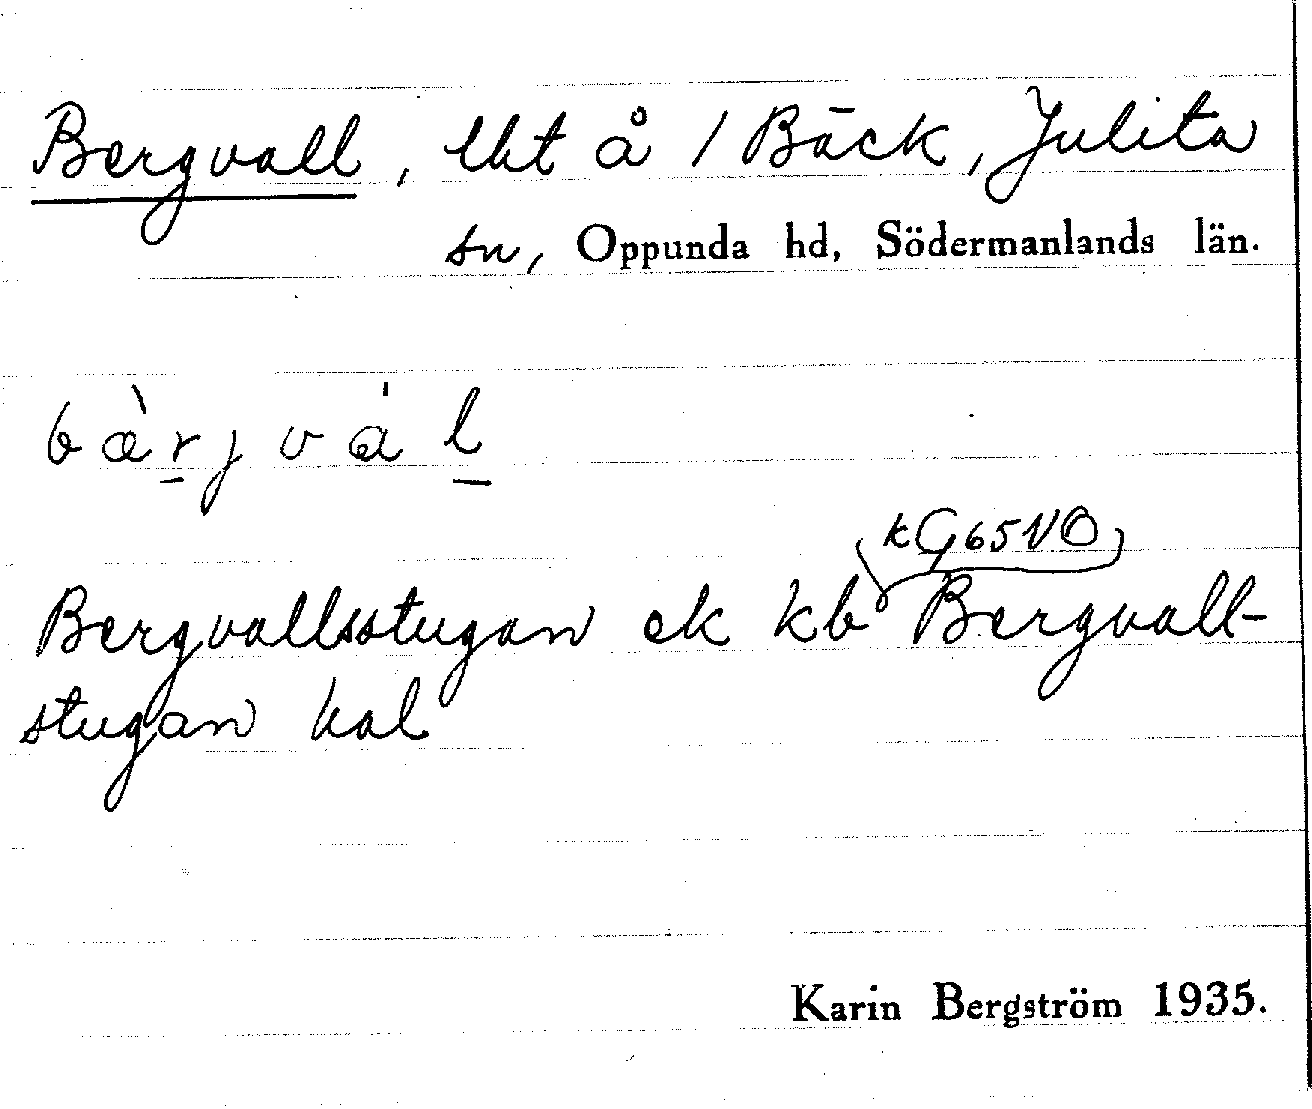 Bergvall, lht å 1 Bäck, Julita
sn, Oppunda hd, Södermanlands län.
bæ̀r̲jvál̲
kG65NO
Bergvallsstugan ek kb Bergvall-
stugan hal
Karin Bergström 1935.